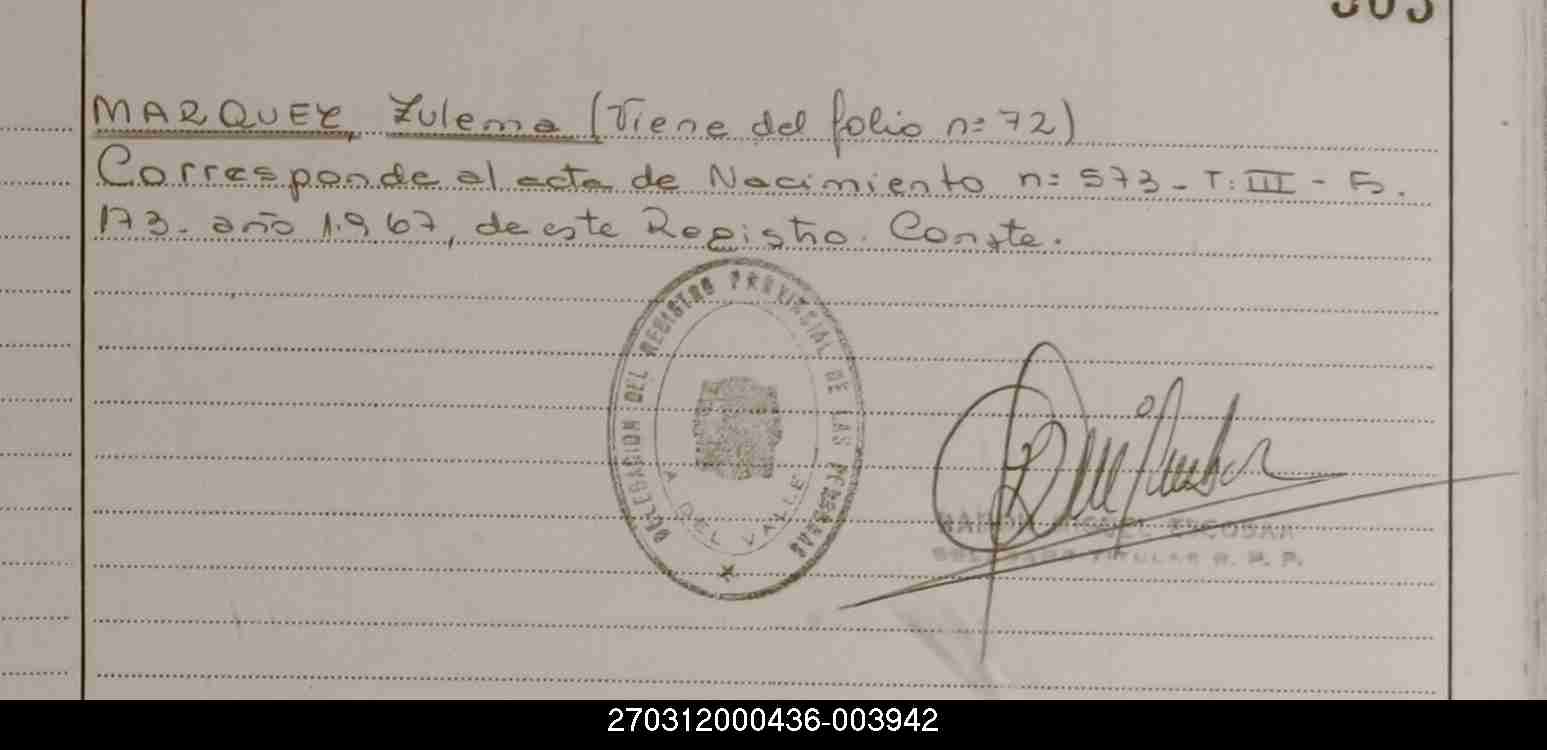 MARQUEZ, Zulema (Viene del folio n= 72)
Corresponde al acta de Nacimiento n= 573 - T: III - F.
173. año 1.967, de este Registro. Conste.
DELEGACION DEL REGISTRO PROVINCIAL DE LAS PERSONAS
DEL VALLE
MIGUEL ESCOBAR
TITULAR R. P. P.
270312000436-003942